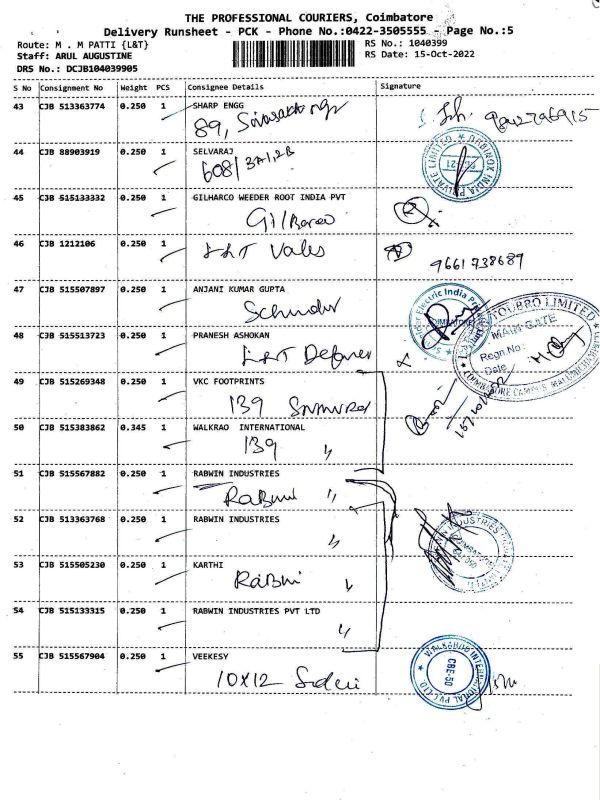 THE PROFESSIONAL COURIERS, Coimbatore
Delivery Runsheet - PCK - Phone No.:0422-3505555 - Page No.:5
Route: M . M PATTI {L&T}
RS No.: 1040399
Staff: ARUL AUGUSTINE
RS Date: 15-Oct-2022
DRS No.: DCJB104039905
S No Consignment No Weight PCS Consignee Details Signature
43 CJB 513363774 0.250 1 SHARP ENGG
89,
44 CJB 88903919 0.250 1 SELVARAJ
608/3A1,2B
45 CJB 515133332 0.250 1 GILHARCO WEEDER ROOT INDIA PVT
46 CJB 1212106 0.250 1 L&T Vales
9661738689
47 CJB 515507897 0.250 1 ANJANI KUMAR GUPTA
48 CJB 515513723 0.250 1 PRANESH ASHOKAN
L&T
MAIN GATE
Regn No:
Date
49 CJB 515269348 0.250 1 VKC FOOTPRINTS
139
50 CJB 515383862 0.345 1 WALKRAO INTERNATIONAL
139 "
51 CJB 515567882 0.250 1 RABWIN INDUSTRIES
"
52 CJB 513363768 0.250 1 RABWIN INDUSTRIES
"
53 CJB 515505230 0.250 1 KARTHI
"
54 CJB 515133315 0.250 1 RABWIN INDUSTRIES PVT LTD
"
55 CJB 515567904 0.250 1 VEEKESY
10X12
CBE-50